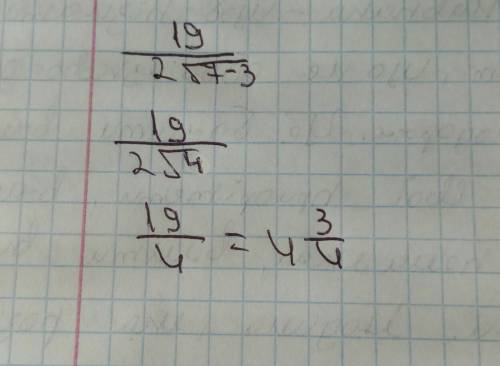 19
2√7-3
19
2√4
19/4 = 4 3/4